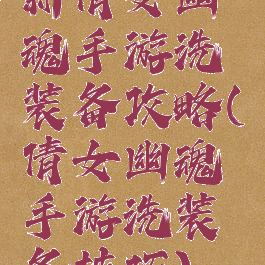 新倩女幽
魂手游洗
装备攻略(
倩女幽魂
手游洗装
备技巧)